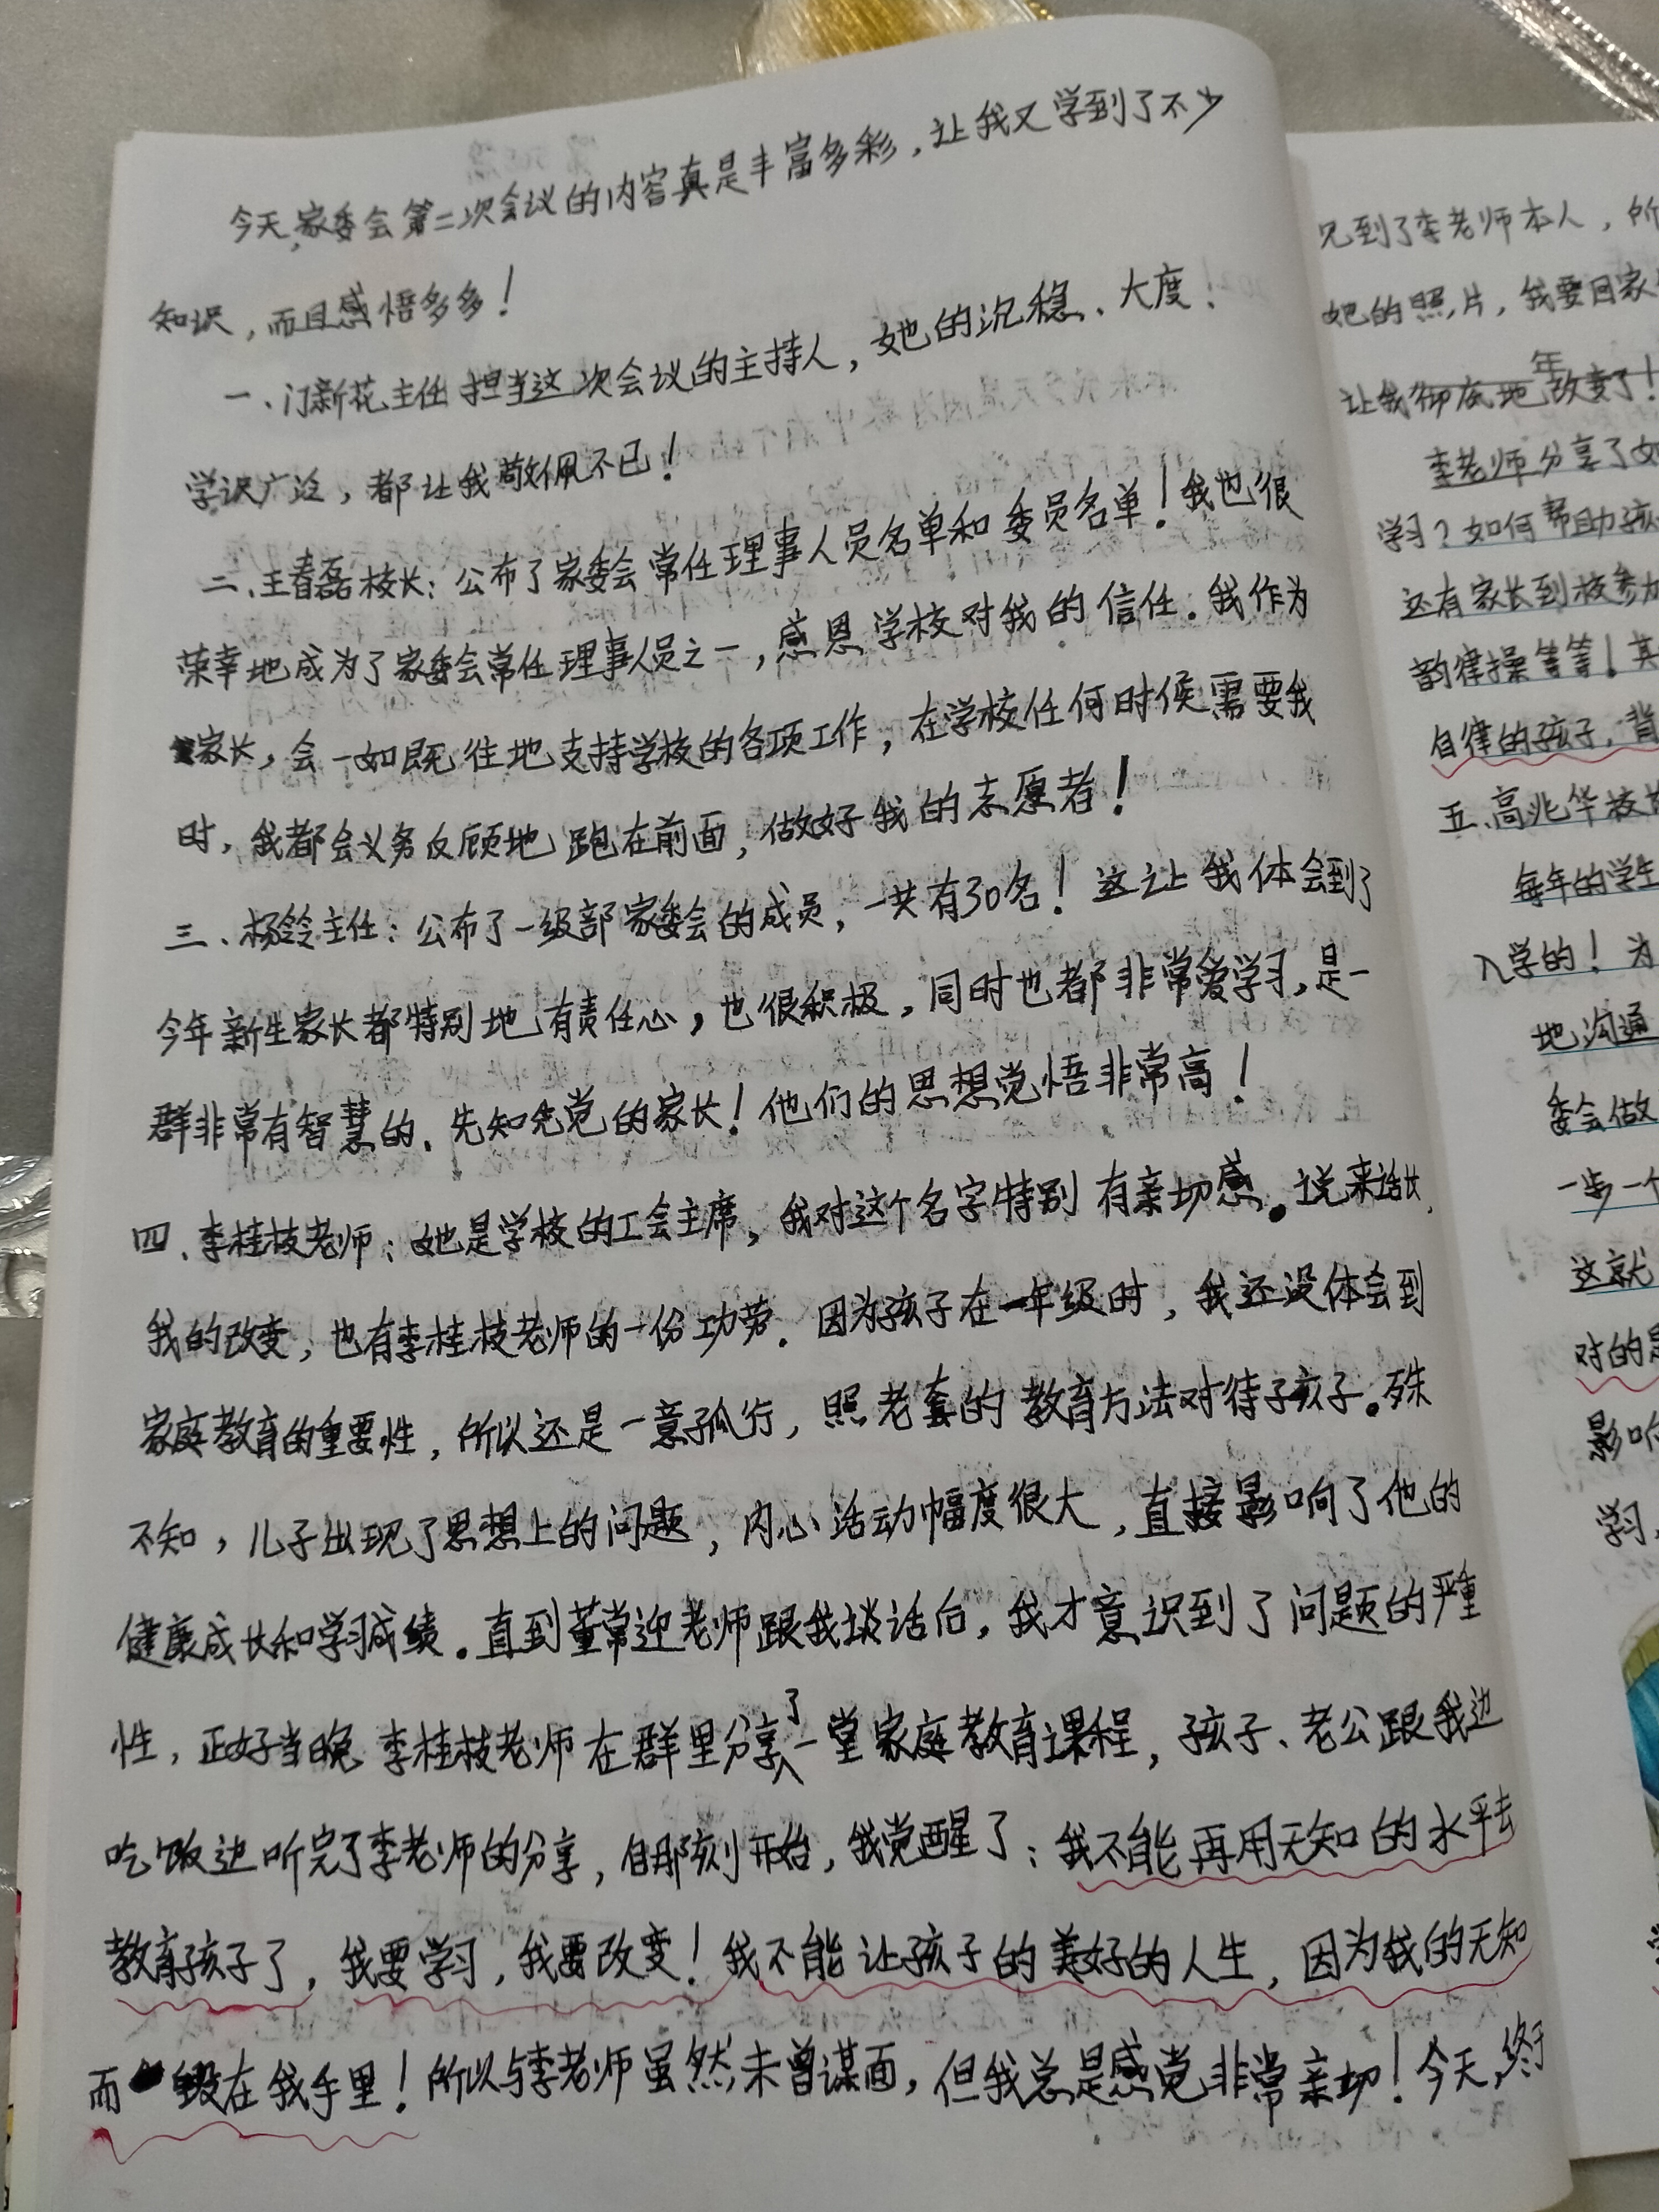 今天,家委会第二次会议的内容真是丰富多彩，让我又学到了不少
知识，而且感悟多多！
一、门新花主任担当这次会议的主持人，她的沉稳、大度！
学识广泛，都让我敬佩不已！
二、王春磊校长：公布了家委会常任理事人员名单和委员名单！我也很
荣幸地成为了家委会常任理事人员之一，感恩学校对我的信任．我作为
家长，会一如既往地支持学校的各项工作，在学校任何时候需要我
时，我都会义务反顾地跑在前面，做好我的志愿者！
三、杨铃主任：公布了一级部家委会的成员，一共有30名！这让我体会到了
今年新生家长都特别地有责任心，也很积极，同时也都非常爱学习，是一
群非常有智慧的、先知先觉的家长！他们的思想觉悟非常高！
四、李桂枝老师：她是学校的工会主席，我对这个名字特别有亲切感。说来话长，
我的改变，也有李桂枝老师的一份功劳．因为孩子在一年级时，我还没体会到
家庭教育的重要性，所以还是一意孤行，照老套的教育方法对待子孩子。殊
不知，儿子出现了思想上的问题，内心活动幅度很大，直接影响了他的
健康成长和学习成绩。直到董常迎老师跟我谈话后，我才意识到了问题的严重
性，正好当晚李桂枝老师在群里分享了一堂家庭教育课程，孩子、老公跟我边
吃饭边听完了李老师的分享，自那刻开始，我觉醒了：我不能再用无知的水平去
教育孩子了，我要学习，我要改变！我不能让孩子的美好的人生，因为我的无知
而毁在我手里！所以与李老师虽然未曾谋面，但我总是感觉非常亲切！今天，终于
见到了李老师本人，所
她的照片，我要回家
年
让我彻底地改变了！
李老师分享了
学习？如何帮助孩
还有家长到校参加
韵律操等等！其
自律的孩子，背
五、高兆华校
每年的学生
入学的！为
地沟通
委会做
一步一个
这就
对的是
影响
学习，